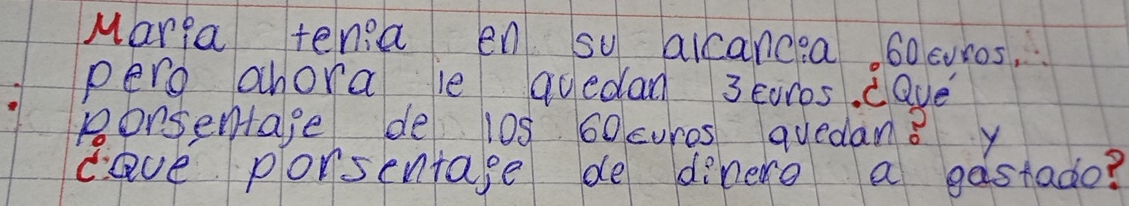 Maria tenia en su alcancia 60 euros,
pero ahora le quedan 3 euros. ¿Qué
porsentaje de los 60 euros quedan? y
¿que porsentaje de dinero a gastado?